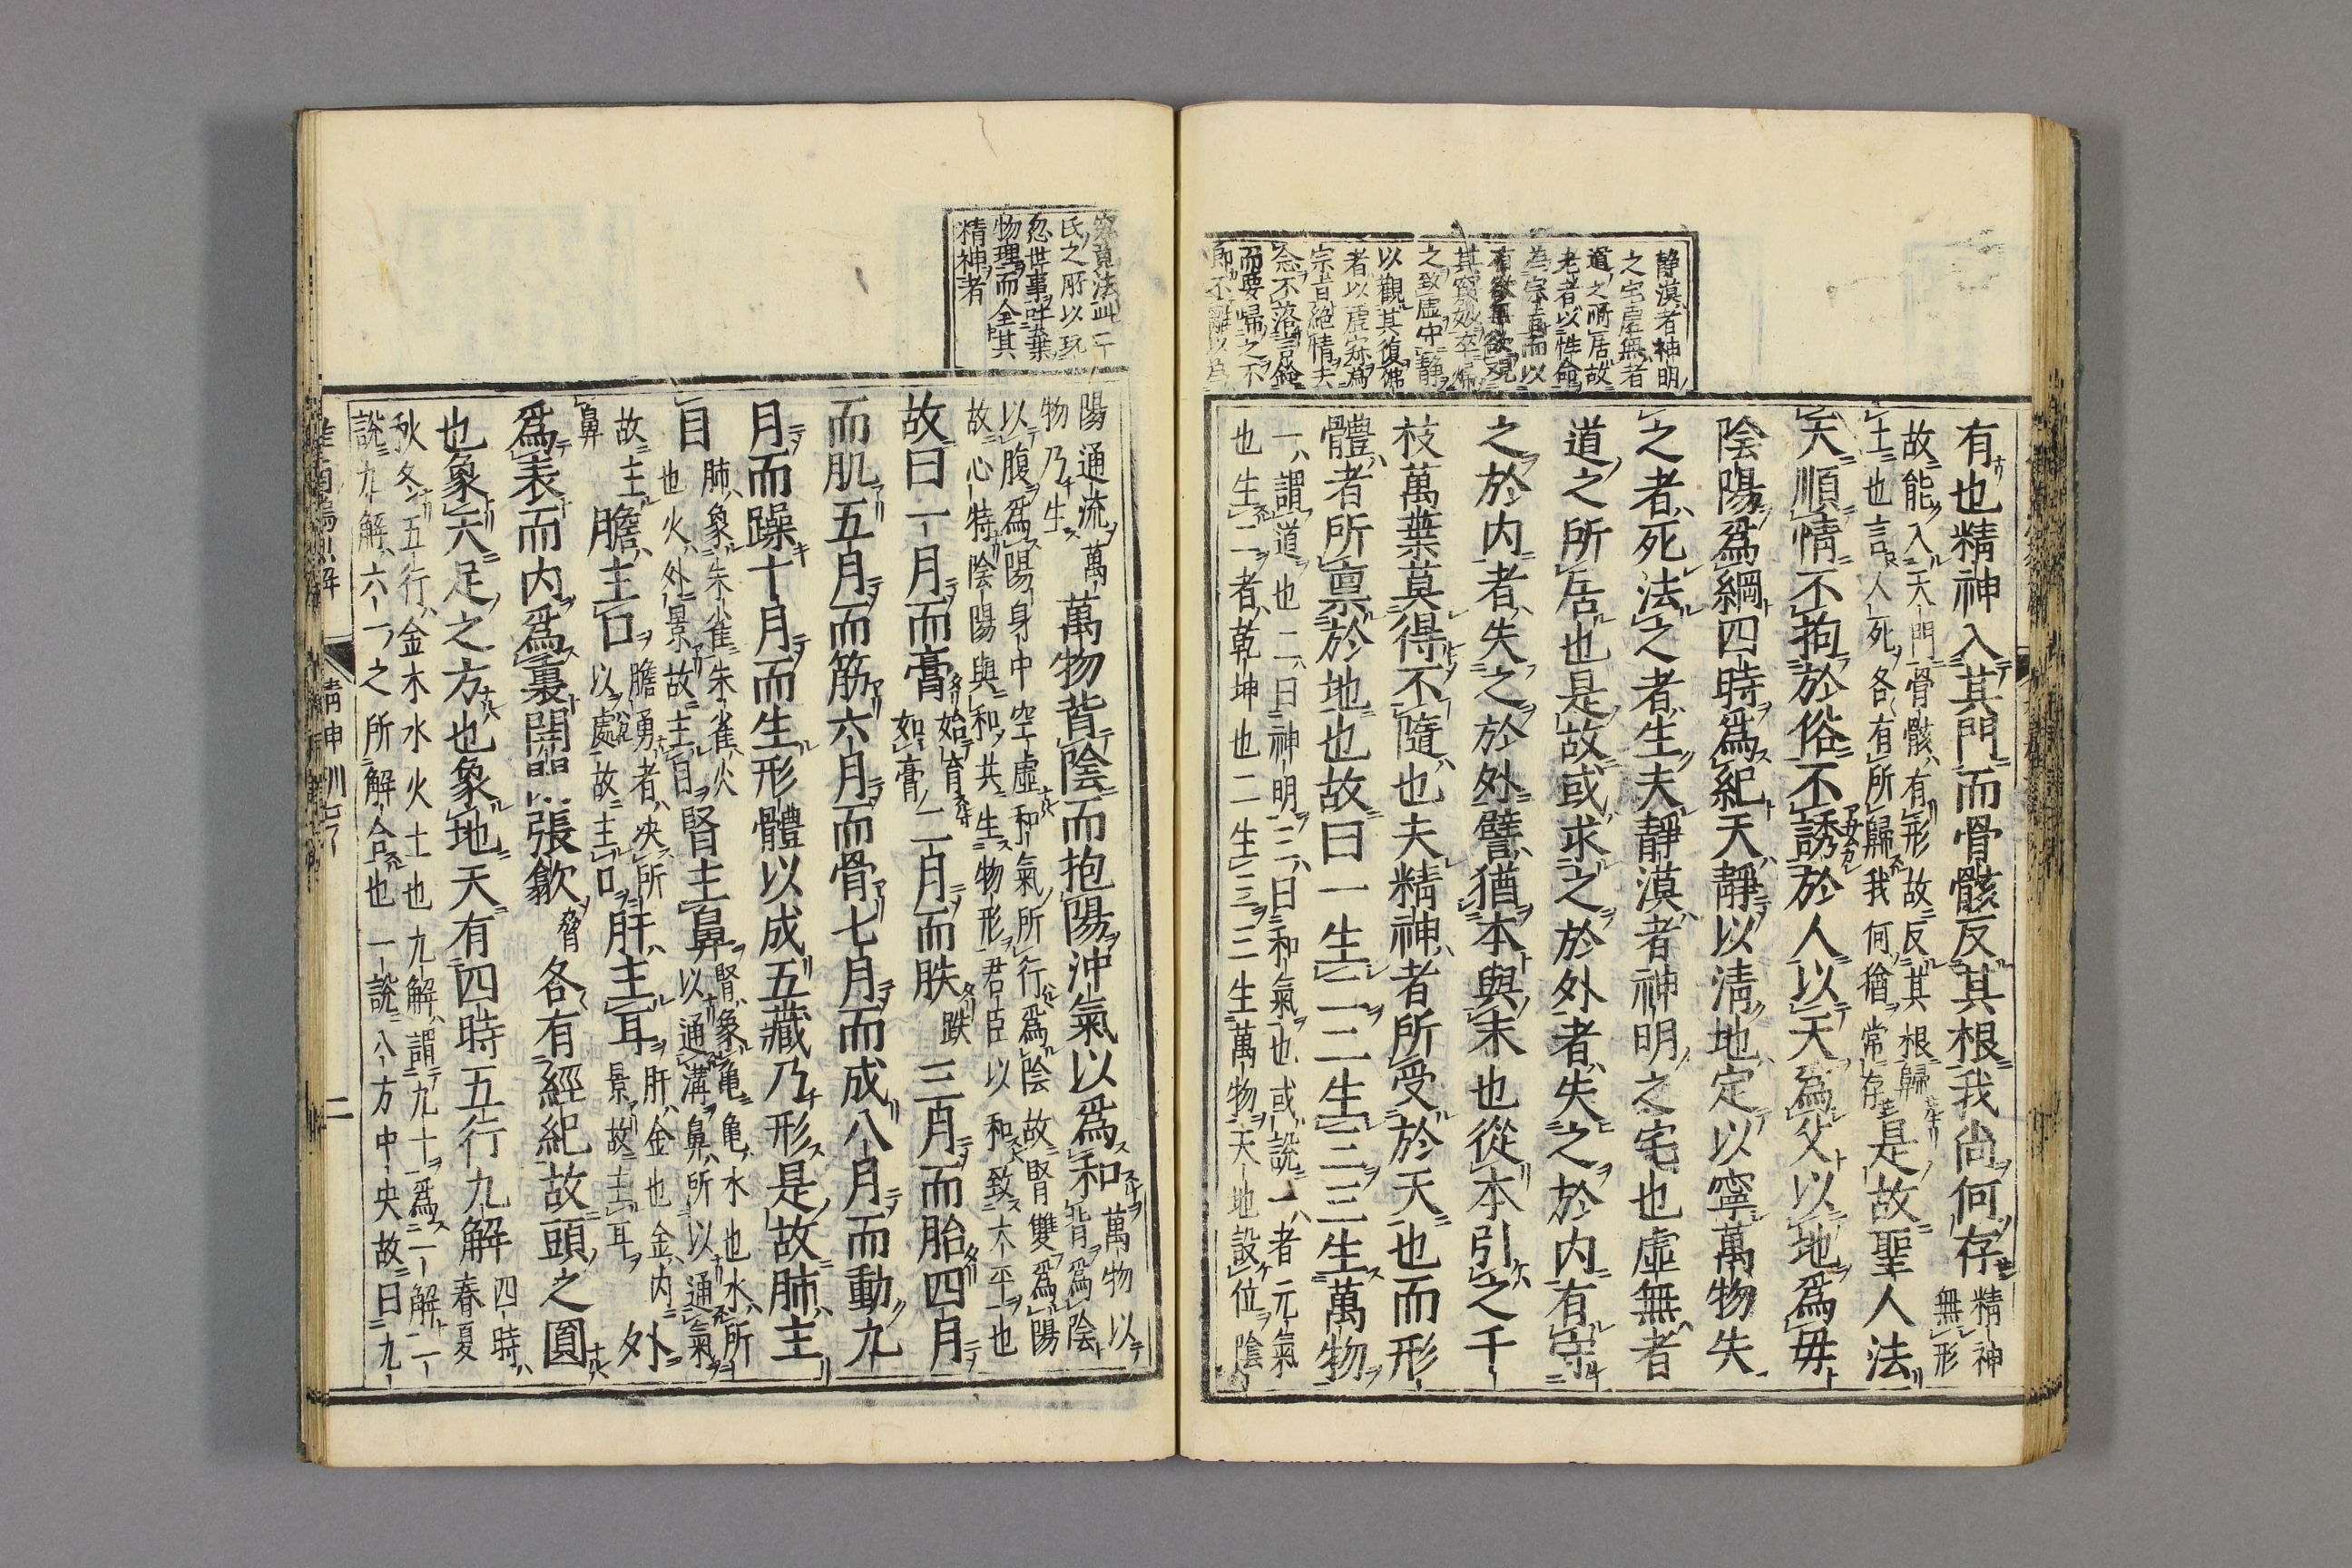 静漠者神明
之宅虚無者
道之所居故
老者以性命
以觀其復佛
者以虚寂為
宗旨絶情夫
念不落言詮
而要歸之不
即不離以為
有也精神入其門而骨骸反其根我尚何存精神無形
故能入天門骨骸有形故反其根歸
土也言人死各有所歸我何猶常存是故聖人法
天順情不拘於俗不誘於人以天為父以地爲母
陰陽爲綱四時爲紀天靜以清地定以寧萬物失
之者死法之者生夫靜漠者神明之宅也虚無者
道之所居也是故或求之於外者失之於内有守
之於内者失之於外譬猶本與末也從本引之千
枝萬葉莫得不隨也夫精神者所受於天也而形
體者所禀於地也故曰一生二二生三三生萬物
一謂道也二曰神明三曰和氣也或説一者元氣
也生二者乾坤也二生三三生萬物天地設位陰
氏之所以玩
忽世事強棄
物理而全其
精神者
陽通流萬物乃生萬物背陰而抱陽沖氣以爲和萬物以背爲陰
以腹爲陽身中空虚和氣所行爲陰故腎雙爲陽
故心特陰陽與和共生物形君臣以和致太平也
故曰一月而膏始育如膏二月而胅胅三月而胎四月
而肌五月而筋六月而骨七月而成八月而動九
月而躁十月而生形體以成五藏乃形是故肺主
目肺象朱雀朱雀火也火外景故主目腎主鼻腎象龜龜水也水所以通溝鼻所以通氣
故主鼻膽主口膽勇者决所以處故主口肝主耳肝金也金内景故主耳外
爲表而内爲裏開閉張歙脅各有經紀故頭之圓
也象天足之方也象地天有四時五行九解四時春夏
秋冬五行金木水火土也九解謂九十爲一解一
説九解六一之所解合也一説八方中央故曰九
淮南鴻烈解 精神訓七 二